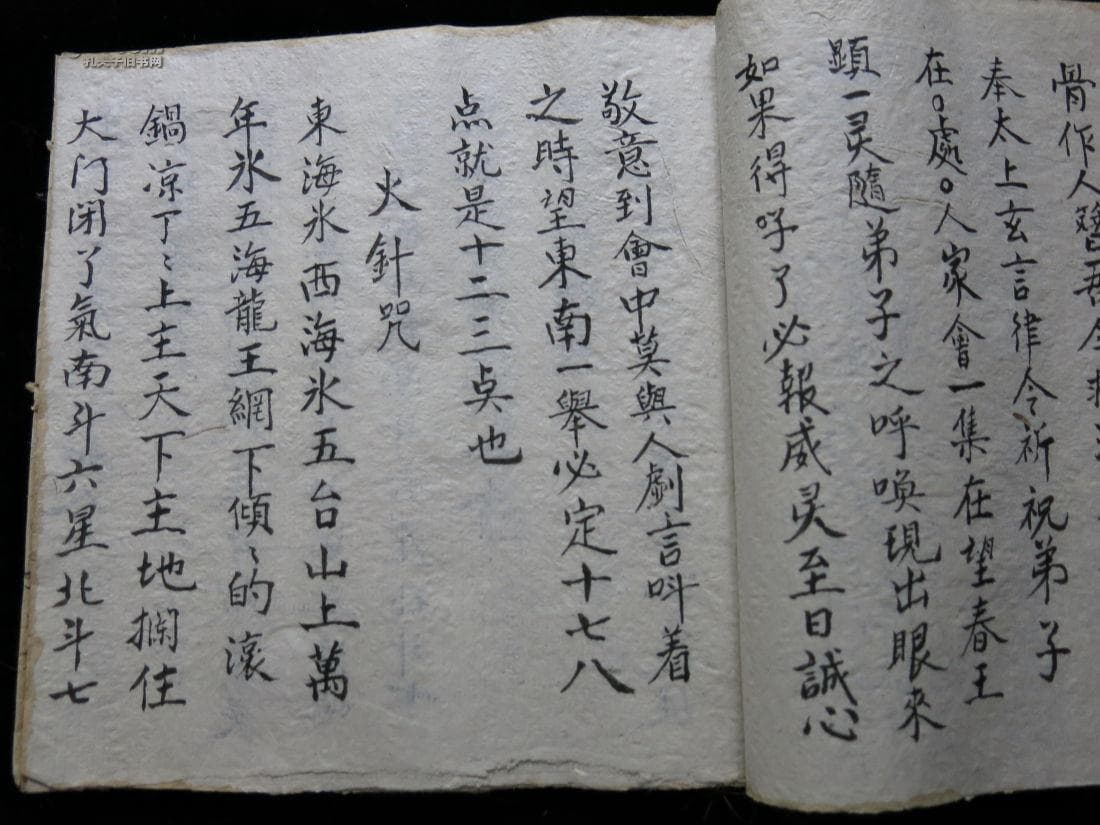 骨作人
奉太上玄言律令祈祝弟子
在〇處〇人家會一集在望春王
顕一灵隨弟子之呼喚現出眼來
如果得呼了必報威灵至日誠心
敬意到會中莫與人劇言呌着
之時望東南一舉必定十七八
点就是十二三点也
火針咒
東海氷西海氷五台山上萬
年氷五海龍王網下傾〻的滾
鍋凉了〻上主天下主地攔住
大门闭了氣南斗六星北斗七
孔夫子旧书网